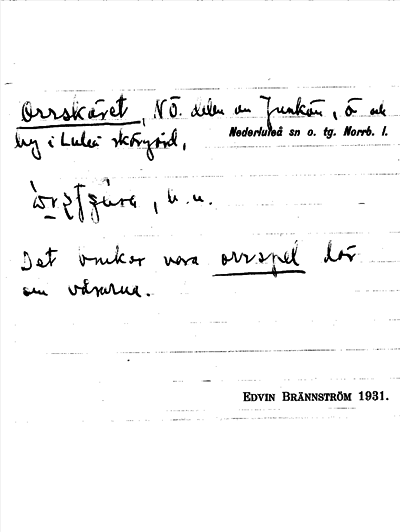 Orrskäret, NÖ. delen av Junkön, ö och
by i Luleå skärgård, Nederluleå sn o. tg. Norrb. l.
, b. u.
Det brukar vara orrspel där
om vårarna.
EDVIN BRÄNNSTRÖM 1931.